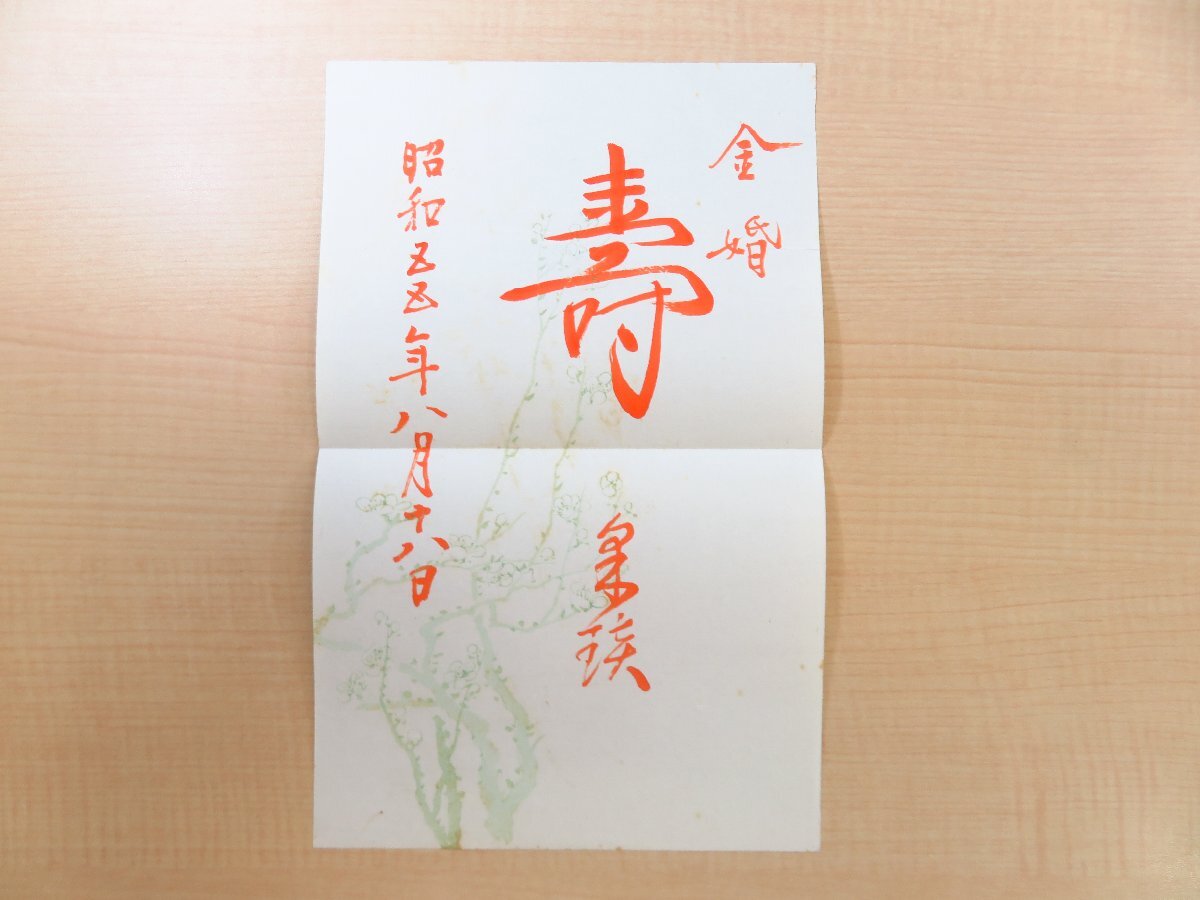 金婚
壽
昭和五五年八月十八日